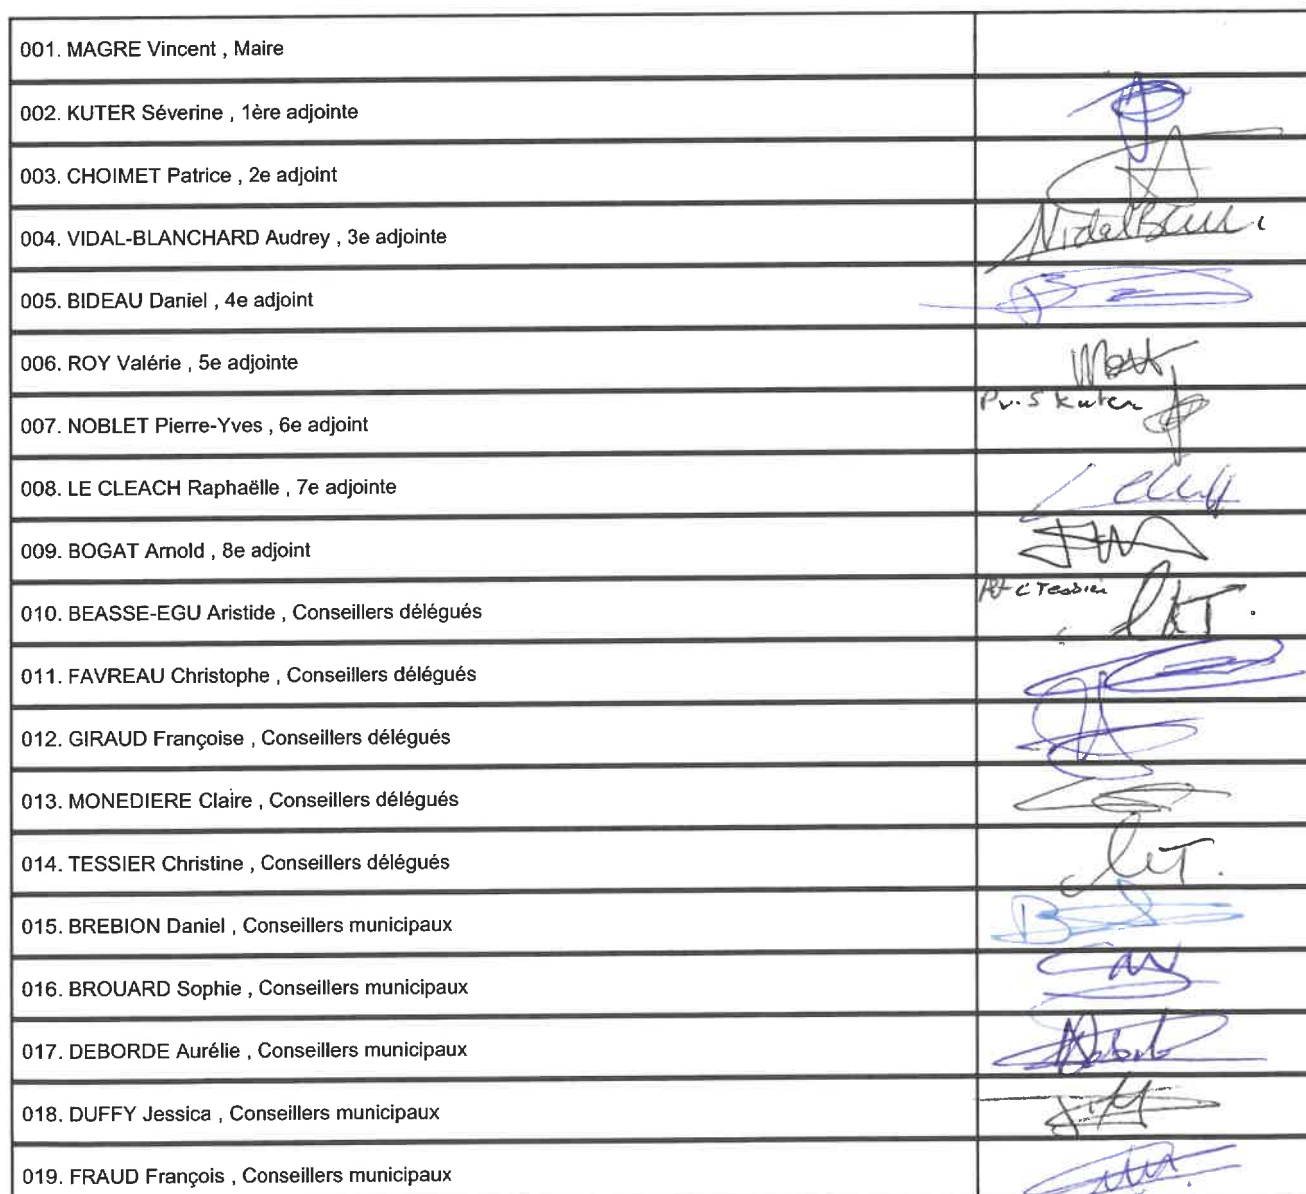 001. MAGRE Vincent , Maire
002. KUTER Séverine , 1ère adjointe
003. CHOIMET Patrice , 2e adjoint
004. VIDAL-BLANCHARD Audrey , 3e adjointe
005. BIDEAU Daniel , 4e adjoint
006. ROY Valérie , 5e adjointe
Pv. S Kuter
007. NOBLET Pierre-Yves , 6e adjoint
008. LE CLEACH Raphaëlle , 7e adjointe
009. BOGAT Arnold , 8e adjoint
C Tessier
010. BEASSE-EGU Aristide , Conseillers délégués
011. FAVREAU Christophe , Conseillers délégués
012. GIRAUD Françoise , Conseillers délégués
013. MONEDIERE Claire , Conseillers délégués
014. TESSIER Christine , Conseillers délégués
015. BREBION Daniel , Conseillers municipaux
016. BROUARD Sophie , Conseillers municipaux
017. DEBORDE Aurélie , Conseillers municipaux
018. DUFFY Jessica , Conseillers municipaux
019. FRAUD François , Conseillers municipaux